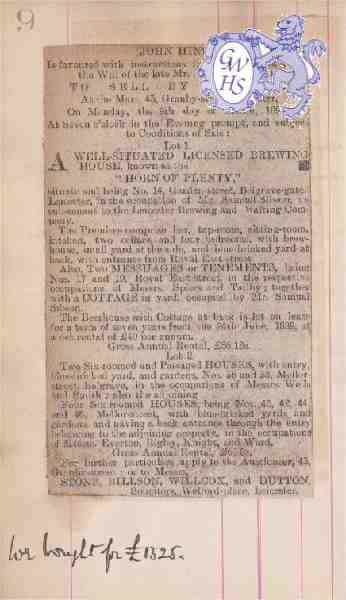 9
JOHN HIN
Is favoured with instructions
the Will of the late Mr.
TO SELL BY
At the Mart, 45, Granby-
On Monday, the 8th day
At Seven o'clock in the Evening prompt, and subject
to Conditions of Sale:
Lot 1.
A WELL-SITUATED LICENSED BREWING
HOUSE, known as the
"HORN OF PLENTY,"
situate and being No. 14, Garden-street, Belgrave-gate,
Leicester, in the occupation of Mr. Samuel Sibson, as
sub-tenant to the Leicester Brewing and Malting Com-
pany.
The Premises comprise bar, tap-room, sitting-room,
kitchen, two cellars, and four bedrooms, with brew-
house, small yard at the side, and blue-bricked yard at
back, with entrance from Royal East-street.
Also, Two MESSUAGES or TENEMENTS, being
Nos. 17 and 19, Royal East-street, in the respective
occupations of Messrs. Spiers and Tacey; together
with a COTTAGE in yard, occupied by Mr. Samuel
Sibson.
The Beerhouse with Cottage at back is let on lease
for a term of seven years from the 24th June, 1898, at
a net rental of £40 per annum.
Gross Annual Rental,
Lot 2.
Two Six-roomed and Palisaded HOUSES, with entry,
blue-bricked yard, and gardens, Nos. 36 and 38, Mellor-
street, Belgrave, in the occupations of Messrs. Wells
and Smith; also the adjoining
Four Six-roomed HOUSES, being Nos. 40, 42, 44
and 46, Mellor-street, with blue-bricked yards and
gardens, and having a back entrance through the entry
belonging to the adjoining property, in the occupations
of Messrs. Everton, Bigby, Kingby, and Ward.
Gross Annual Rental,
For further particulars apply to the Auctioneer, 45,
Granby-street; or to Messrs.
STONE, BILLSON, WILLCOX, and DUTTON,
Solicitors, Welford-place, Leicester.
We bought for £1325.
GWHS